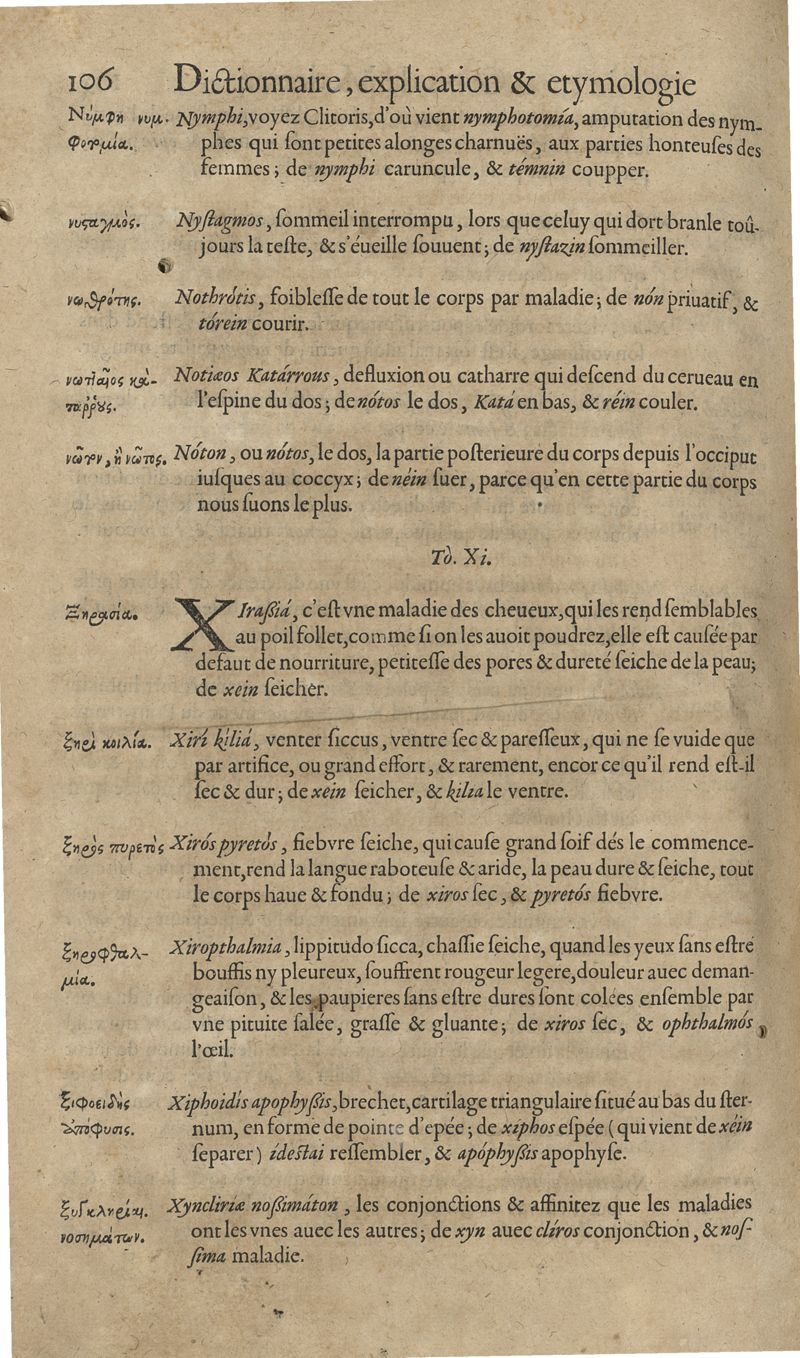 106 Dictionnaire, explication & etymologie
Νύμφη νυμ- Nymphi, voyez Clitoris, d'où vient nymphotomía, amputation des nym-
φοτομία. phes qui ſont petites alonges charnuës, aux parties honteuſes des
femmes ; de nymphi caruncule, & témnin coupper.
νυςαγμὸς. Nyſtagmos, ſommeil interrompu, lors que celuy qui dort branle toû-
jours la teſte, & s'éueille ſouuent ; de nyſtazin ſommeiller.
νωθρότης. Nothrótis, foibleſſe de tout le corps par maladie ; de nón priuatif, &
tórein courir.
νωτιαῖος κα- Notiæos Katárrous, defluxion ou catharre qui deſcend du cerueau en
ταῤῥους. l'eſpine du dos ; de nótos le dos, Katá en bas, & réin couler.
νῶτον, ἢ νῶτος. Nóton, ou nótos, le dos, la partie poſterieure du corps depuis l'occiput
iuſques au coccyx ; de néin ſuer, parce qu'en cette partie du corps
nous ſuons le plus.
Tò. Xi.
Ξηρασία. XIraſsiá, c'eſt vne maladie des cheueux, qui les rend ſemblables
au poil follet, comme ſi on les auoit poudrez, elle eſt cauſée par
defaut de nourriture, petiteſſe des pores & dureté ſeiche de la peau;
de xein ſeicher.
ξηρὰ κοιλία. Xirí kiliá, venter ſiccus, ventre ſec & pareſſeux, qui ne ſe vuide que
par artifice, ou grand effort, & rarement, encor ce qu'il rend eſt-il
ſec & dur ; de xein ſeicher, & kilia le ventre.
ξηρὸς πυρετὸς Xirós pyretòs, fiebvre ſeiche, qui cauſe grand ſoif dés le commence-
ment, rend la langue raboteuſe & aride, la peau dure & ſeiche, tout
le corps haue & fondu ; de xiros ſec, & pyretós fiebvre.
ξηροφθαλ- Xiropthalmia, lippitudo ſicca, chaſſie ſeiche, quand les yeux ſans eſtre
μία. bouffis ny pleureux, ſouffrent rougeur legere, douleur auec deman-
geaiſon, & les paupieres ſans eſtre dures ſont colées enſemble par
vne pituite ſalée, graſſe & gluante ; de xiros ſec, & ophthalmós,
l'œil.
ξιφοειδὴς Xiphoidis apophyſsis, brechet, cartilage triangulaire ſitué au bas du ſter-
ἀπόφυσις. num, en forme de pointe d'epée ; de xiphos eſpée ( qui vient de xéin
ſeparer ) ídeſtai reſſembler, & apóphyſsis apophyſe.
ξυγκληρίαι Xyncliriæ noſsimáton, les conjonctions & affinitez que les maladies
νοσημάτων. ont les vnes auec les autres ; de xyn auec clíros conjonction, & noſ-
ſima maladie.